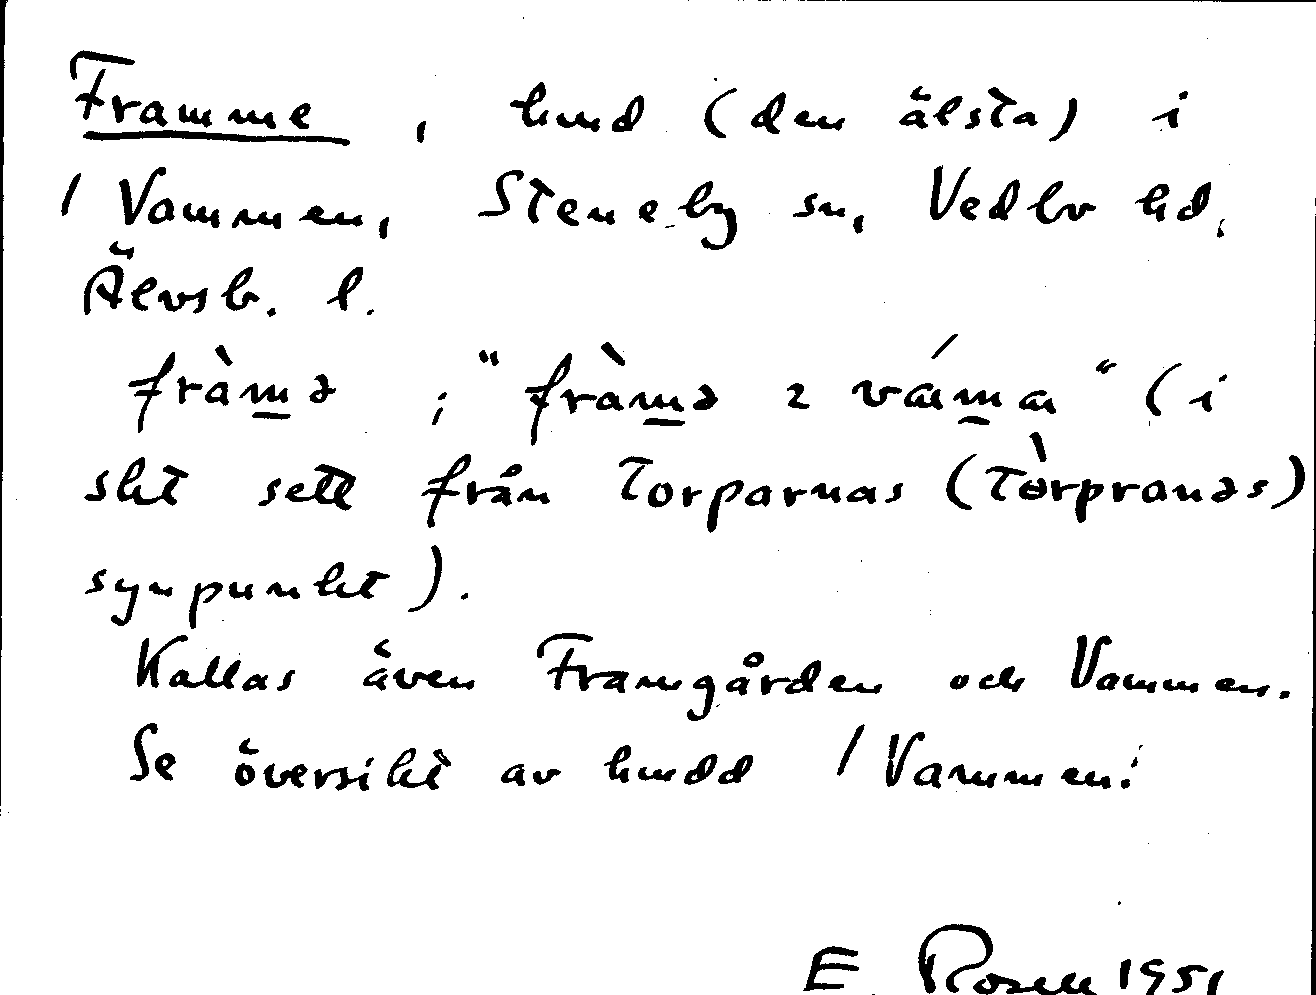 Framme, hmd (den älsta) i
/ Vammen, Steneby sn, Vedbo hd,
Älvsb. l.
fràmə ; "fràmə ɩ váma" (i
skt sett från Torparnas (Tòrpranəs)
synpunkt).
Kallas även Framgården och Vammen.
Se översikt av hmdd / Vammen!
E. Rosell 1951